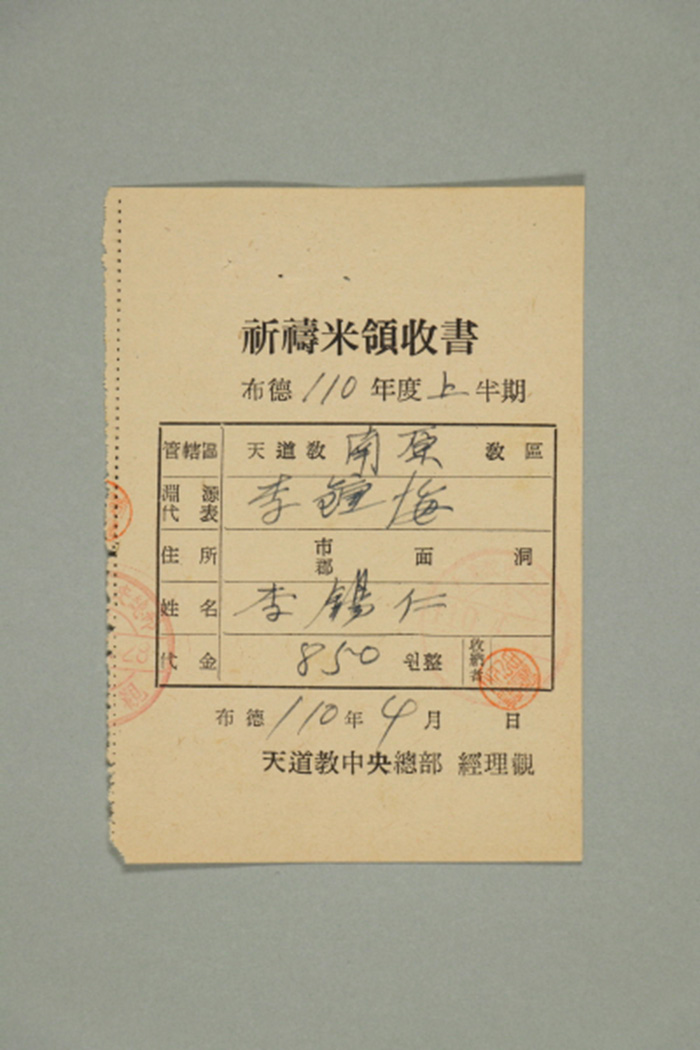 祈禱米領收書
布德 110 年度 上 半期
管轄區 天道敎 南原 敎區
淵源代表 李鍾梅
住所 市郡 面 洞
姓名 李錫仁
代金 850 원整 收納者
布德 110 年 4 月 日
天道敎中央總部 經理觀